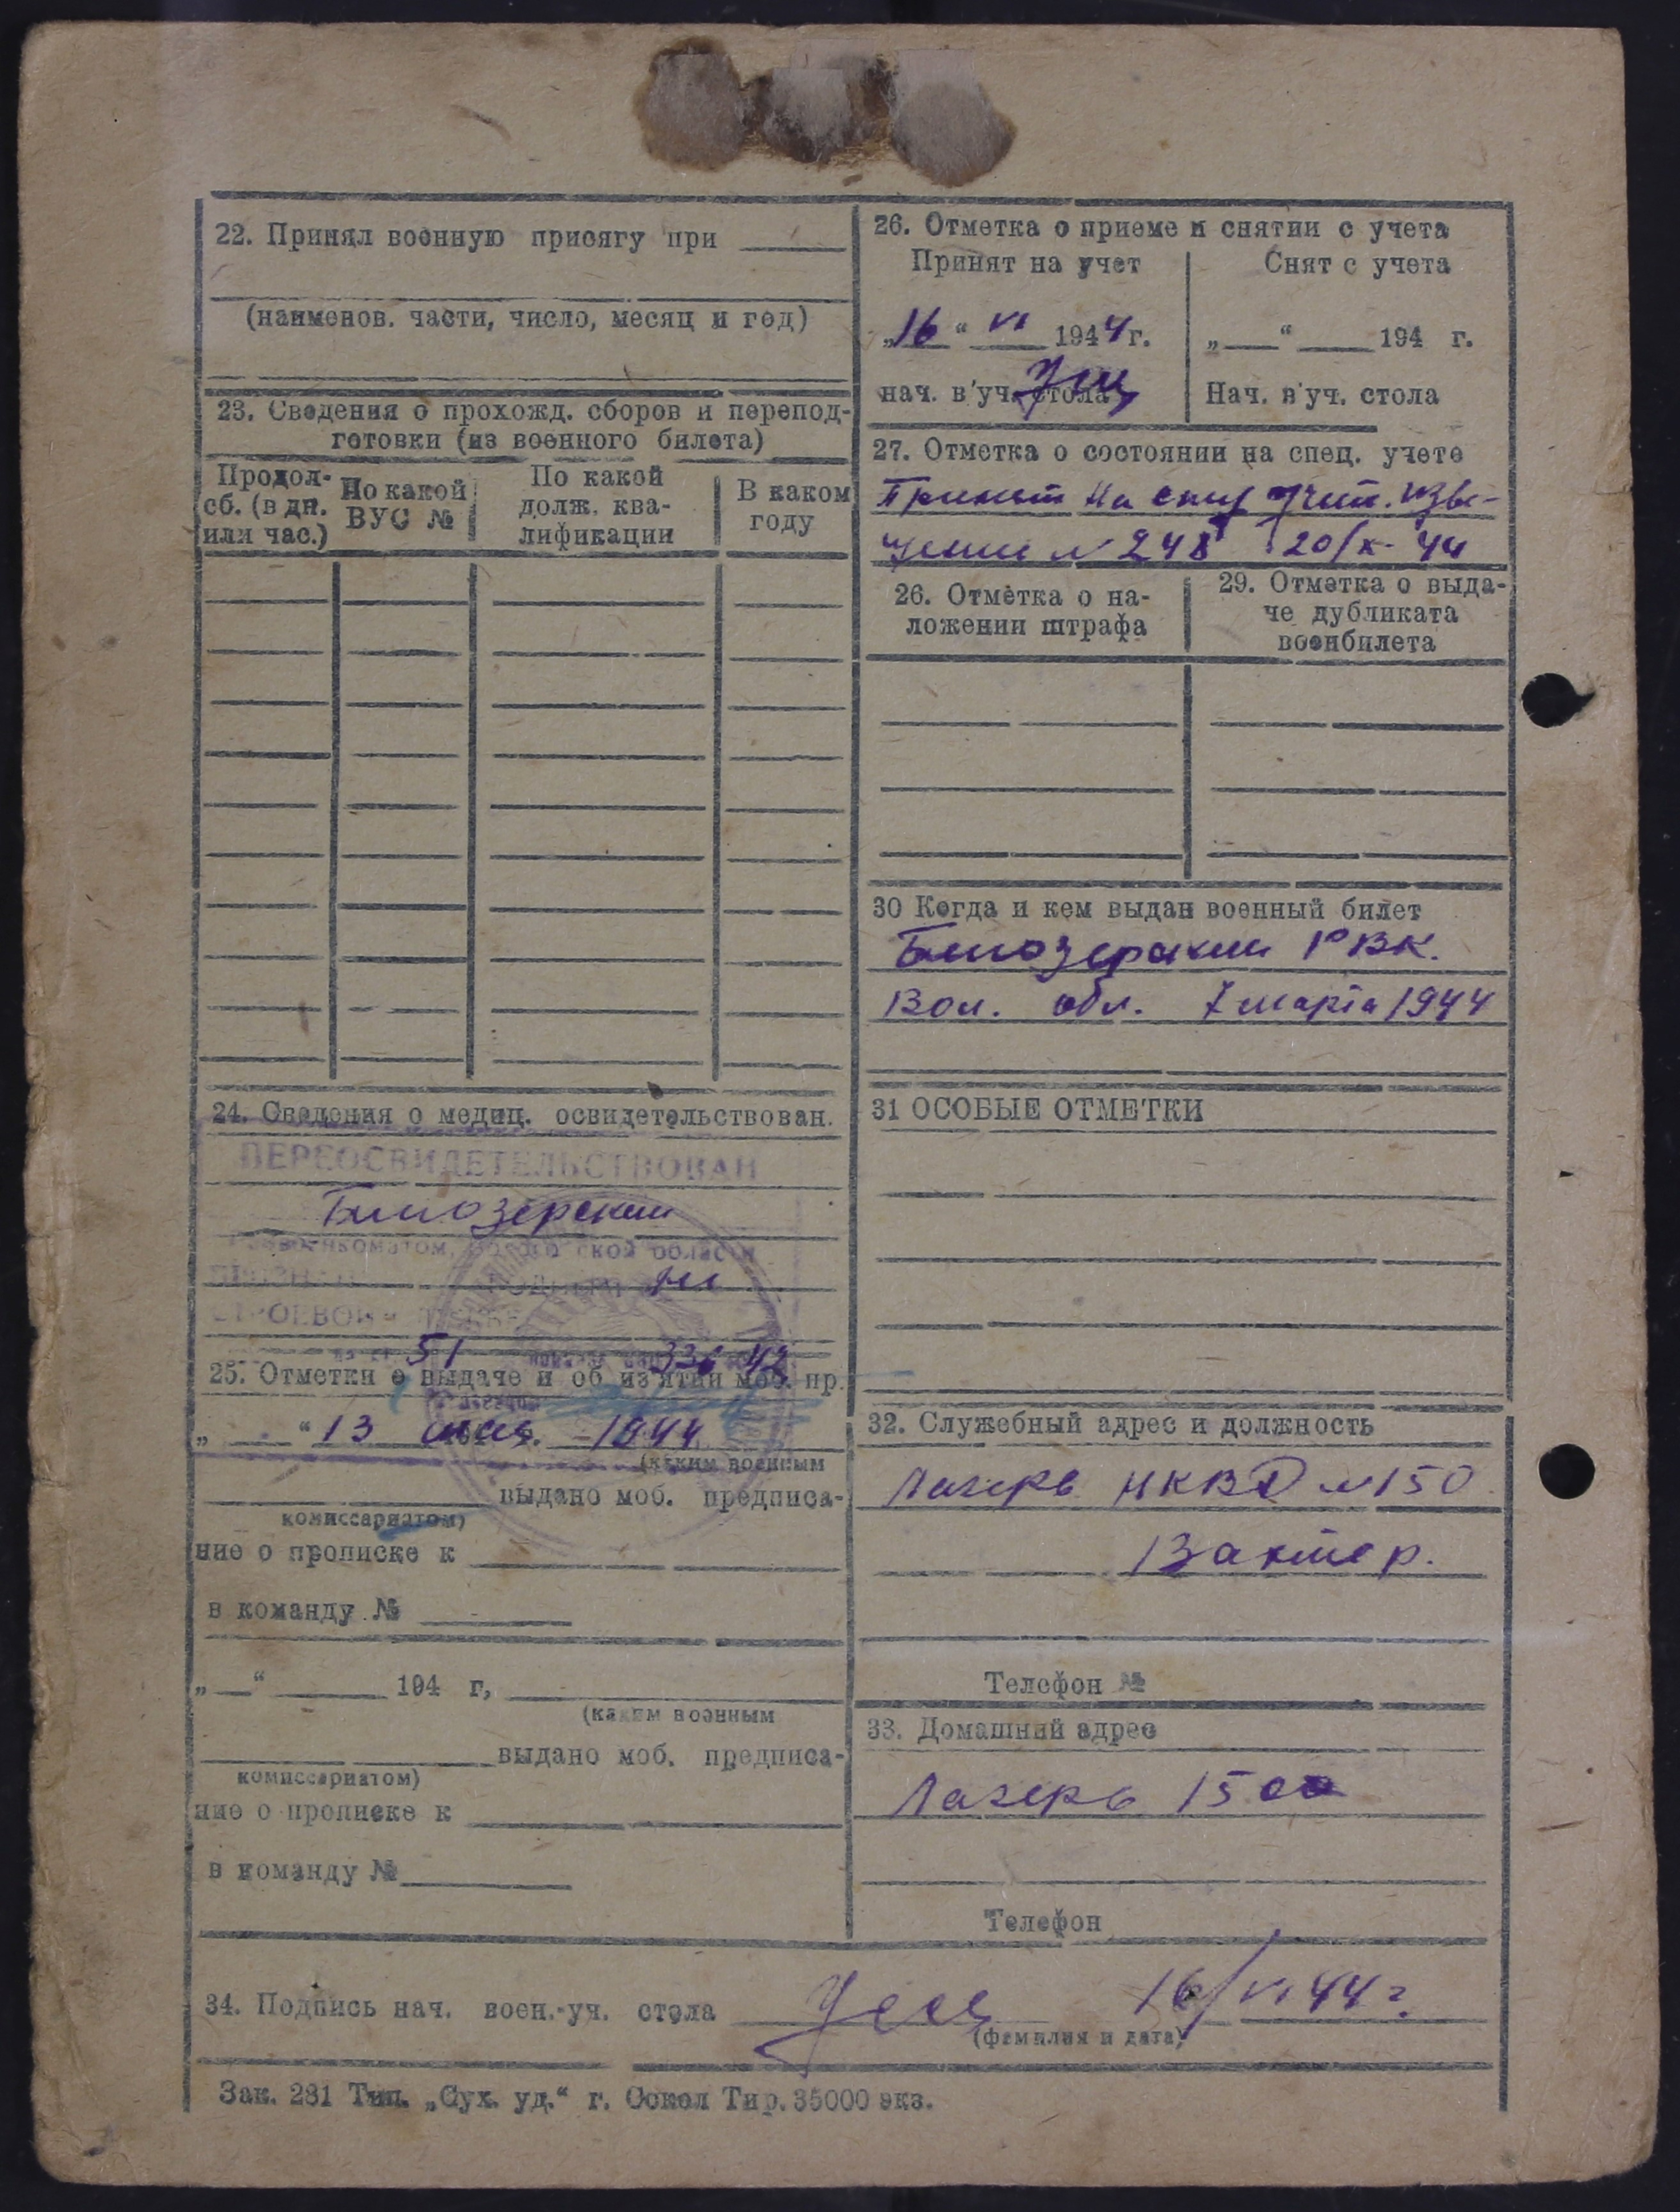 22. Принял военную присягу при
(наименов. части, число, месяц и год)
23. Сведения о прохожд. сборов и перепод-
готовки (из военного билета)
Продол-
сб. (в дн.
или час.)
По какой
ВУС №
По какой
долж. ква-
лификации
В каком
году
24. Сведения о медиц. освидетельствован.
ПЕРЕОСВИДЕТЕЛЬСТВОВАН
Белозерским
военкоматом, Вологодской области
СТРОЕВОЙ
51 336 42
25. Отметки о выдаче и об из'ятии моб. пр.
„ “ 13 1944
(каким военным
выдано моб. предписа-
комиссариатом)
ние о прописке к
в команду №
„ “ 194 г,
(каким военным
выдано моб. предписа-
комиссариатом)
ние о прописке к
в команду №
26. Отметка о приеме и снятии с учета
Принят на учет
„16“ VI 1944 г.
нач. в'уч. стола
Снят с учета
„ “ 194 г.
Нач. в'уч. стола
27. Отметка о состоянии на спец. учете
Принят на спец учет. изве-
щение № 248 20/X-44
26. Отметка о на-
ложении штрафа
29. Отметка о выда-
че дубликата
военбилета
30 Когда и кем выдан военный билет
Белозерским РВК.
Вол. обл. 7 марта 1944
31 ОСОБЫЕ ОТМЕТКИ
32. Служебный адрес и должность
Лагерь НКВД №150
Вахтер.
Телефон №
33. Домашний адрес
Лагерь 150
Телефон
34. Подпись нач. воен.-уч. стола 16/VI 44 г.
(фамилия и дата)
Зак. 281 Тип. „Сух. уд.“ г. Сокол Тир. 35000 экз.